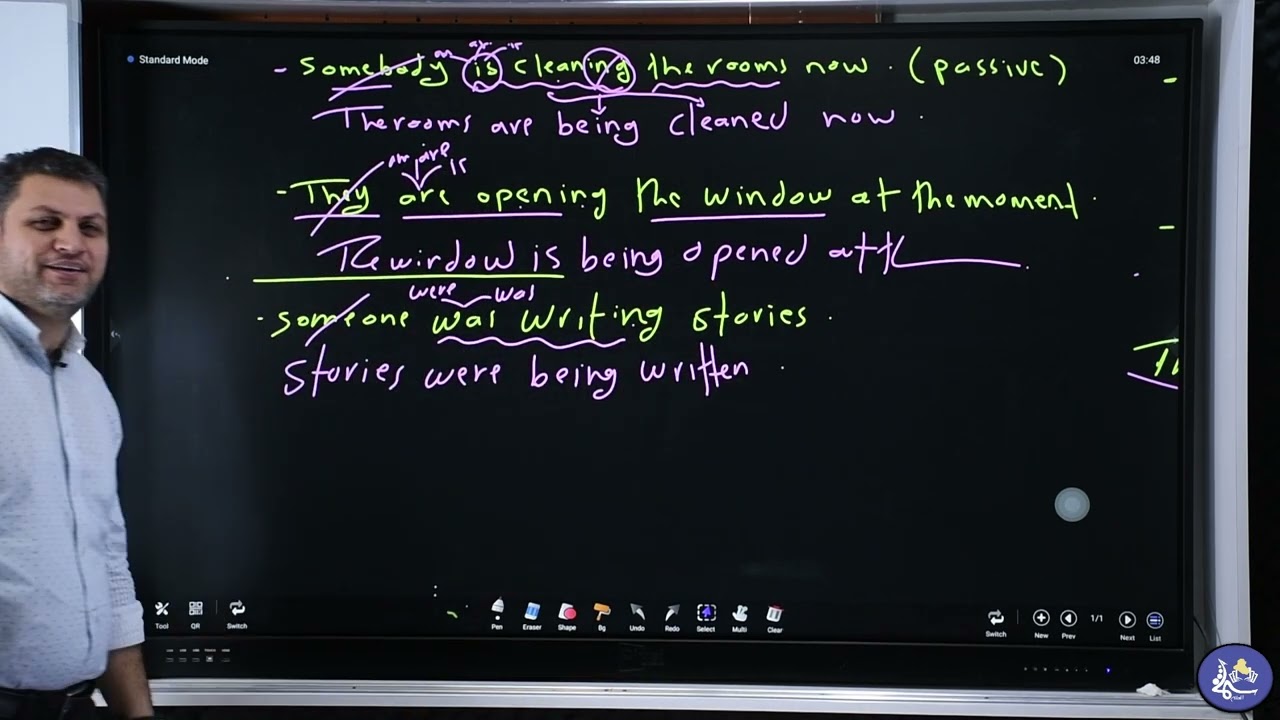 Standard Mode
03:48
- Somebody is cleaning the rooms now . (passive)
am are is
The rooms are being cleaned now .
am are is
- They are opening the window at the moment .
The window is being opened at th
were was
. Someone was writing stories .
Stories were being written .
Th
Tool QR Switch Pen Eraser Shape Bg Undo Redo Select Multi Clear Switch New Prev 1/1 Next List